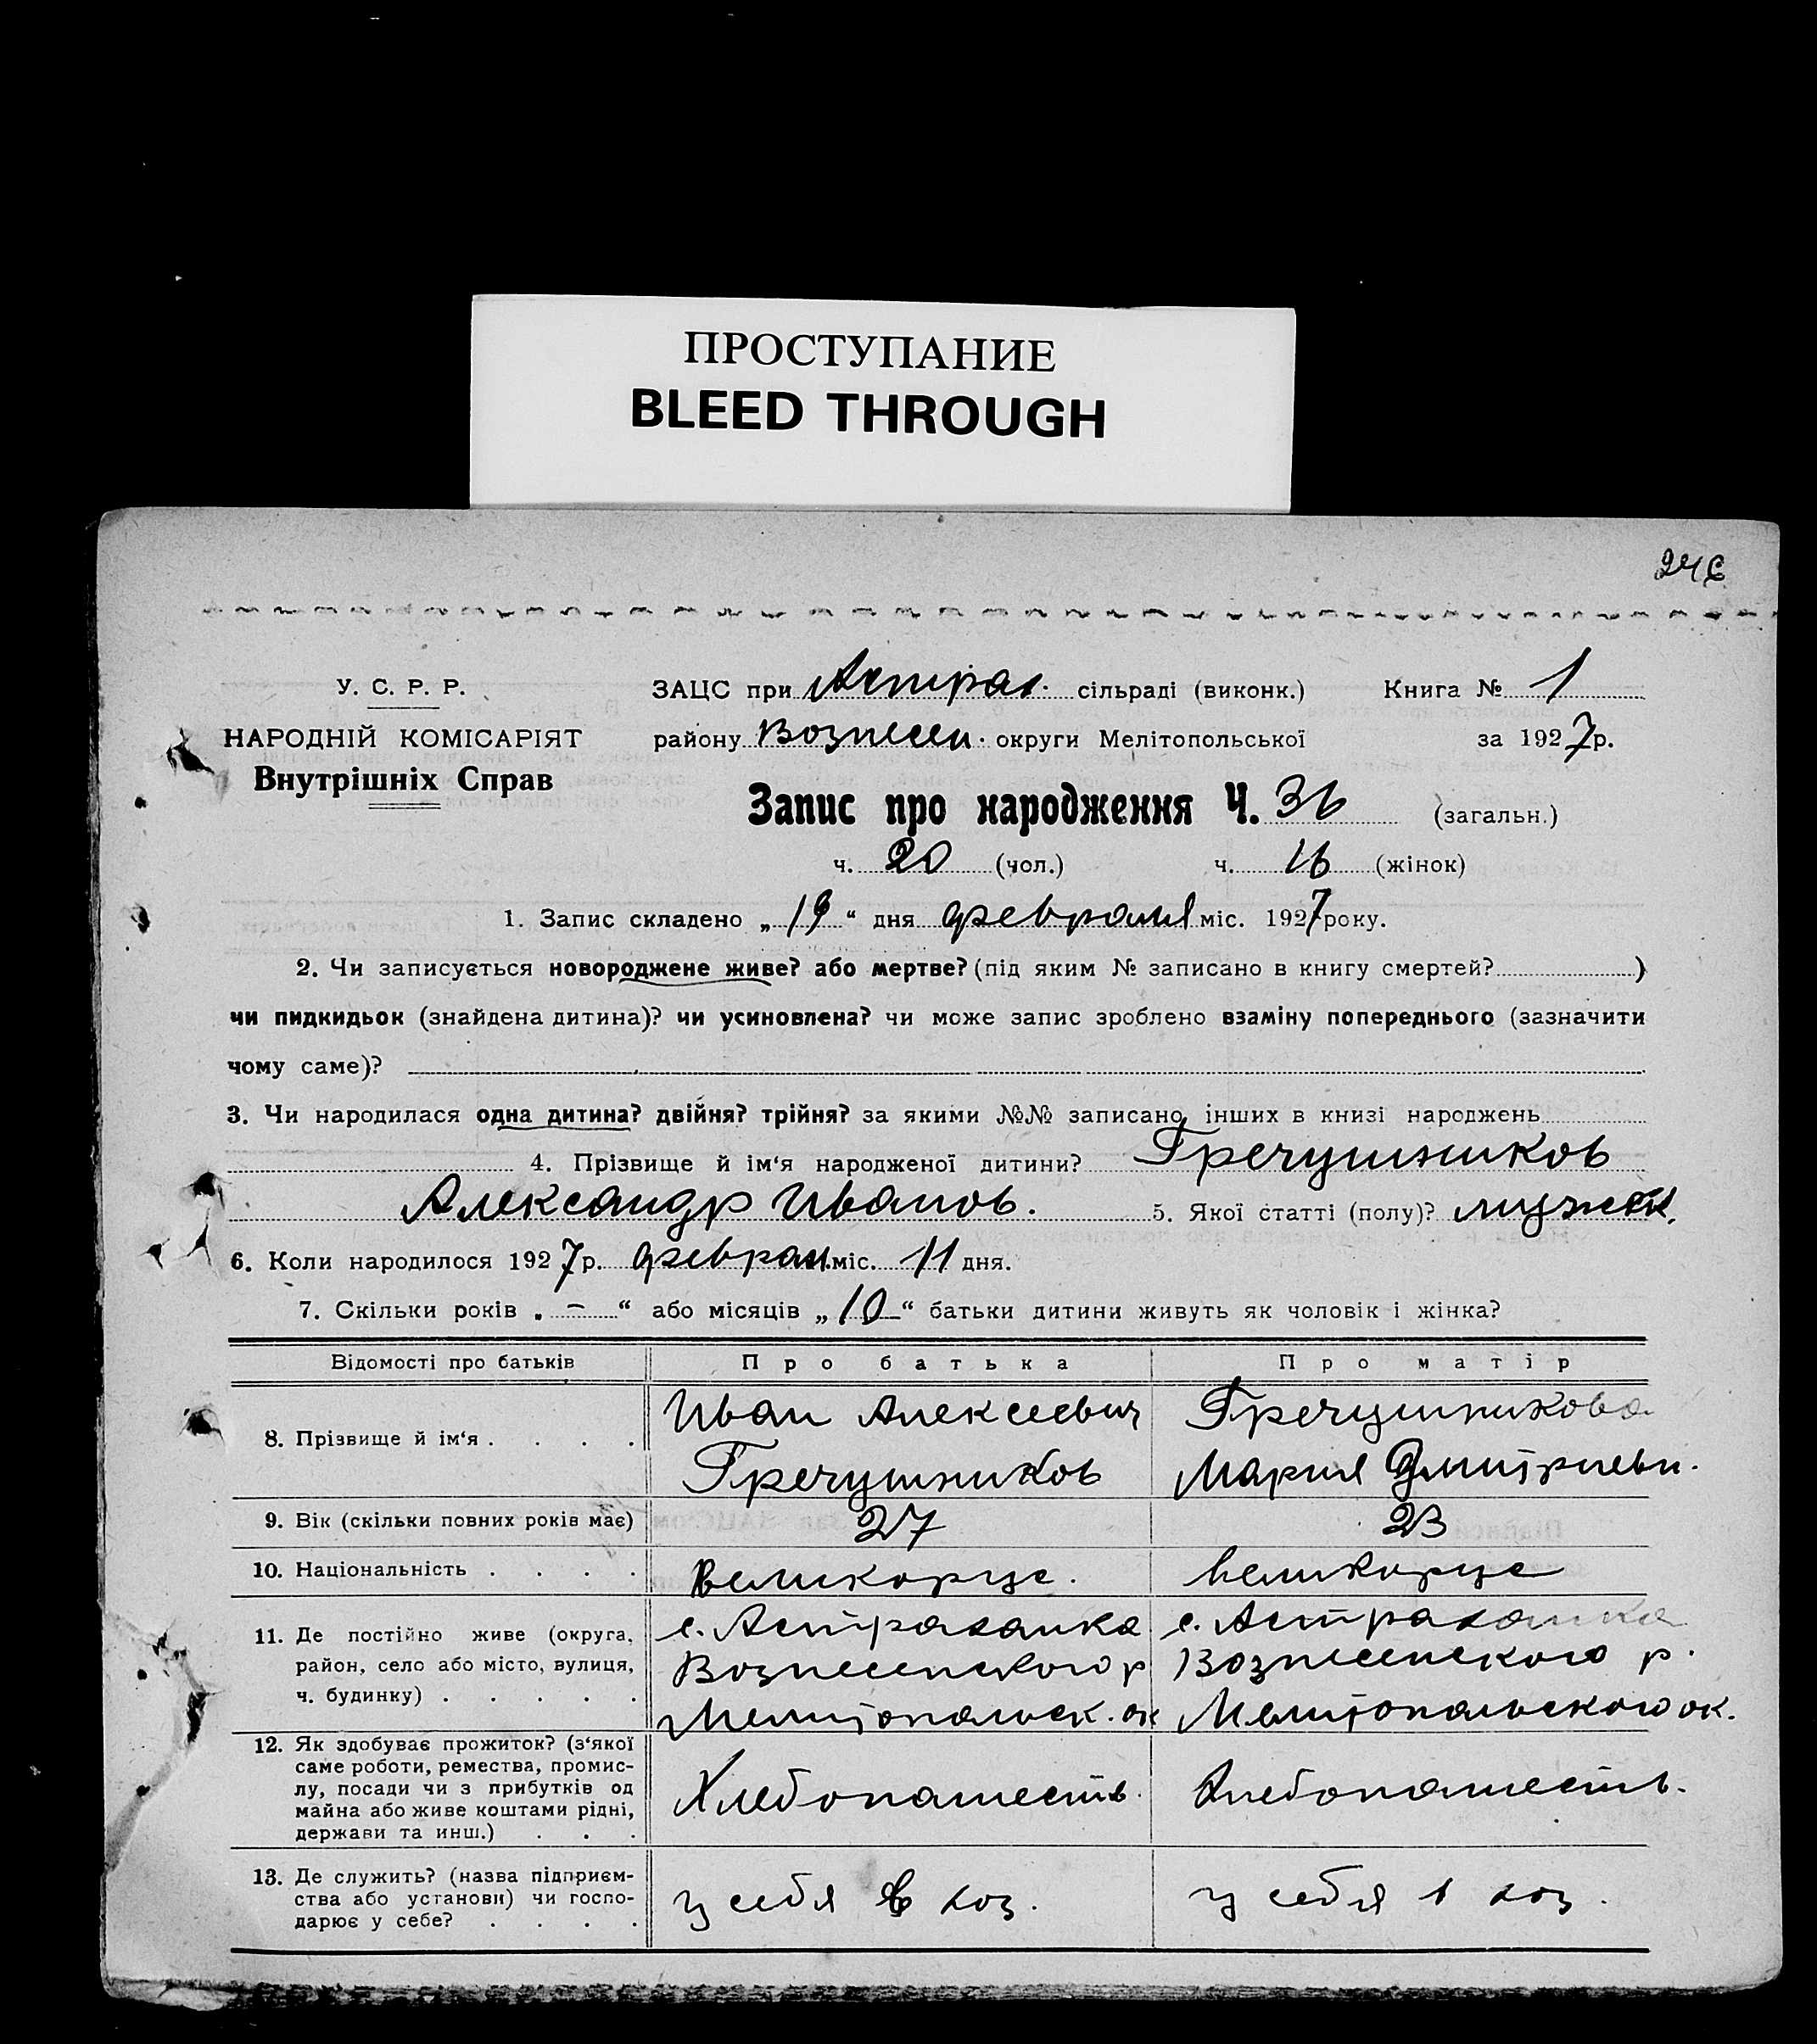 ПРОСТУПАНИЕ
BLEED THROUGH
246
У. С. Р. Р.
НАРОДНІЙ КОМІСАРІЯТ
Внутрішніх Справ
ЗАЦС при Астрах. сільраді (виконк.) Книга № 1
району Вознесен. округи Мелітопольської за 1927р.
Запис про народження Ч. 36 (загальн.)
ч. 20 (чол.) ч. 16 (жінок)
1. Запис складено „19“ дня февраля міс. 1927 року.
2. Чи записується новороджене живе? або мертве? (під яким № записано в книгу смертей? )
чи пидкидьок (знайдена дитина)? чи усиновлена? чи може запис зроблено взаміну попереднього (зазначити
чому саме)?
3. Чи народилася одна дитина? двійня? трійня? за якими №№ записано інших в книзі народжень
4. Прізвище й ім‘я народженої дитини? Гречушников
Александр Иванов. 5. Якої статті (полу)? мужск.
6. Коли народилося 1927р. феврал. міс. 11 дня.
7. Скільки років „-“ або місяців „10“ батьки дитини живуть як чоловік і жінка?
Відомості про батьків Про батька Про матір
8. Прізвище й ім‘я . . . .
Иван Алексеевич
Гречушников
Гречушникова
Мария Дмитриевн.
9. Вік (скільки повних років має) 27 23
10. Національність . . . . великорус. великорус
11. Де постійно живе (округа,
район, село або місто, вулиця,
ч. будинку) . . . . .
с. Астраханка
Вознесенского р
Мелитопольск. ок
с. Астраханка
Вознесенского р.
Мелитопольского ок.
12. Як здобуває прожиток? (з‘якої
саме роботи, ремества, промис-
лу, посади чи з прибутків од
майна або живе коштами рідні,
держави та инш.) . . .
Хлебопашеств.
Хлебопашеств.
13. Де служить? (назва підприєм-
ства або установи) чи госпо-
дарює у себе? . . . .
у себя в хоз.
у себя в хоз.